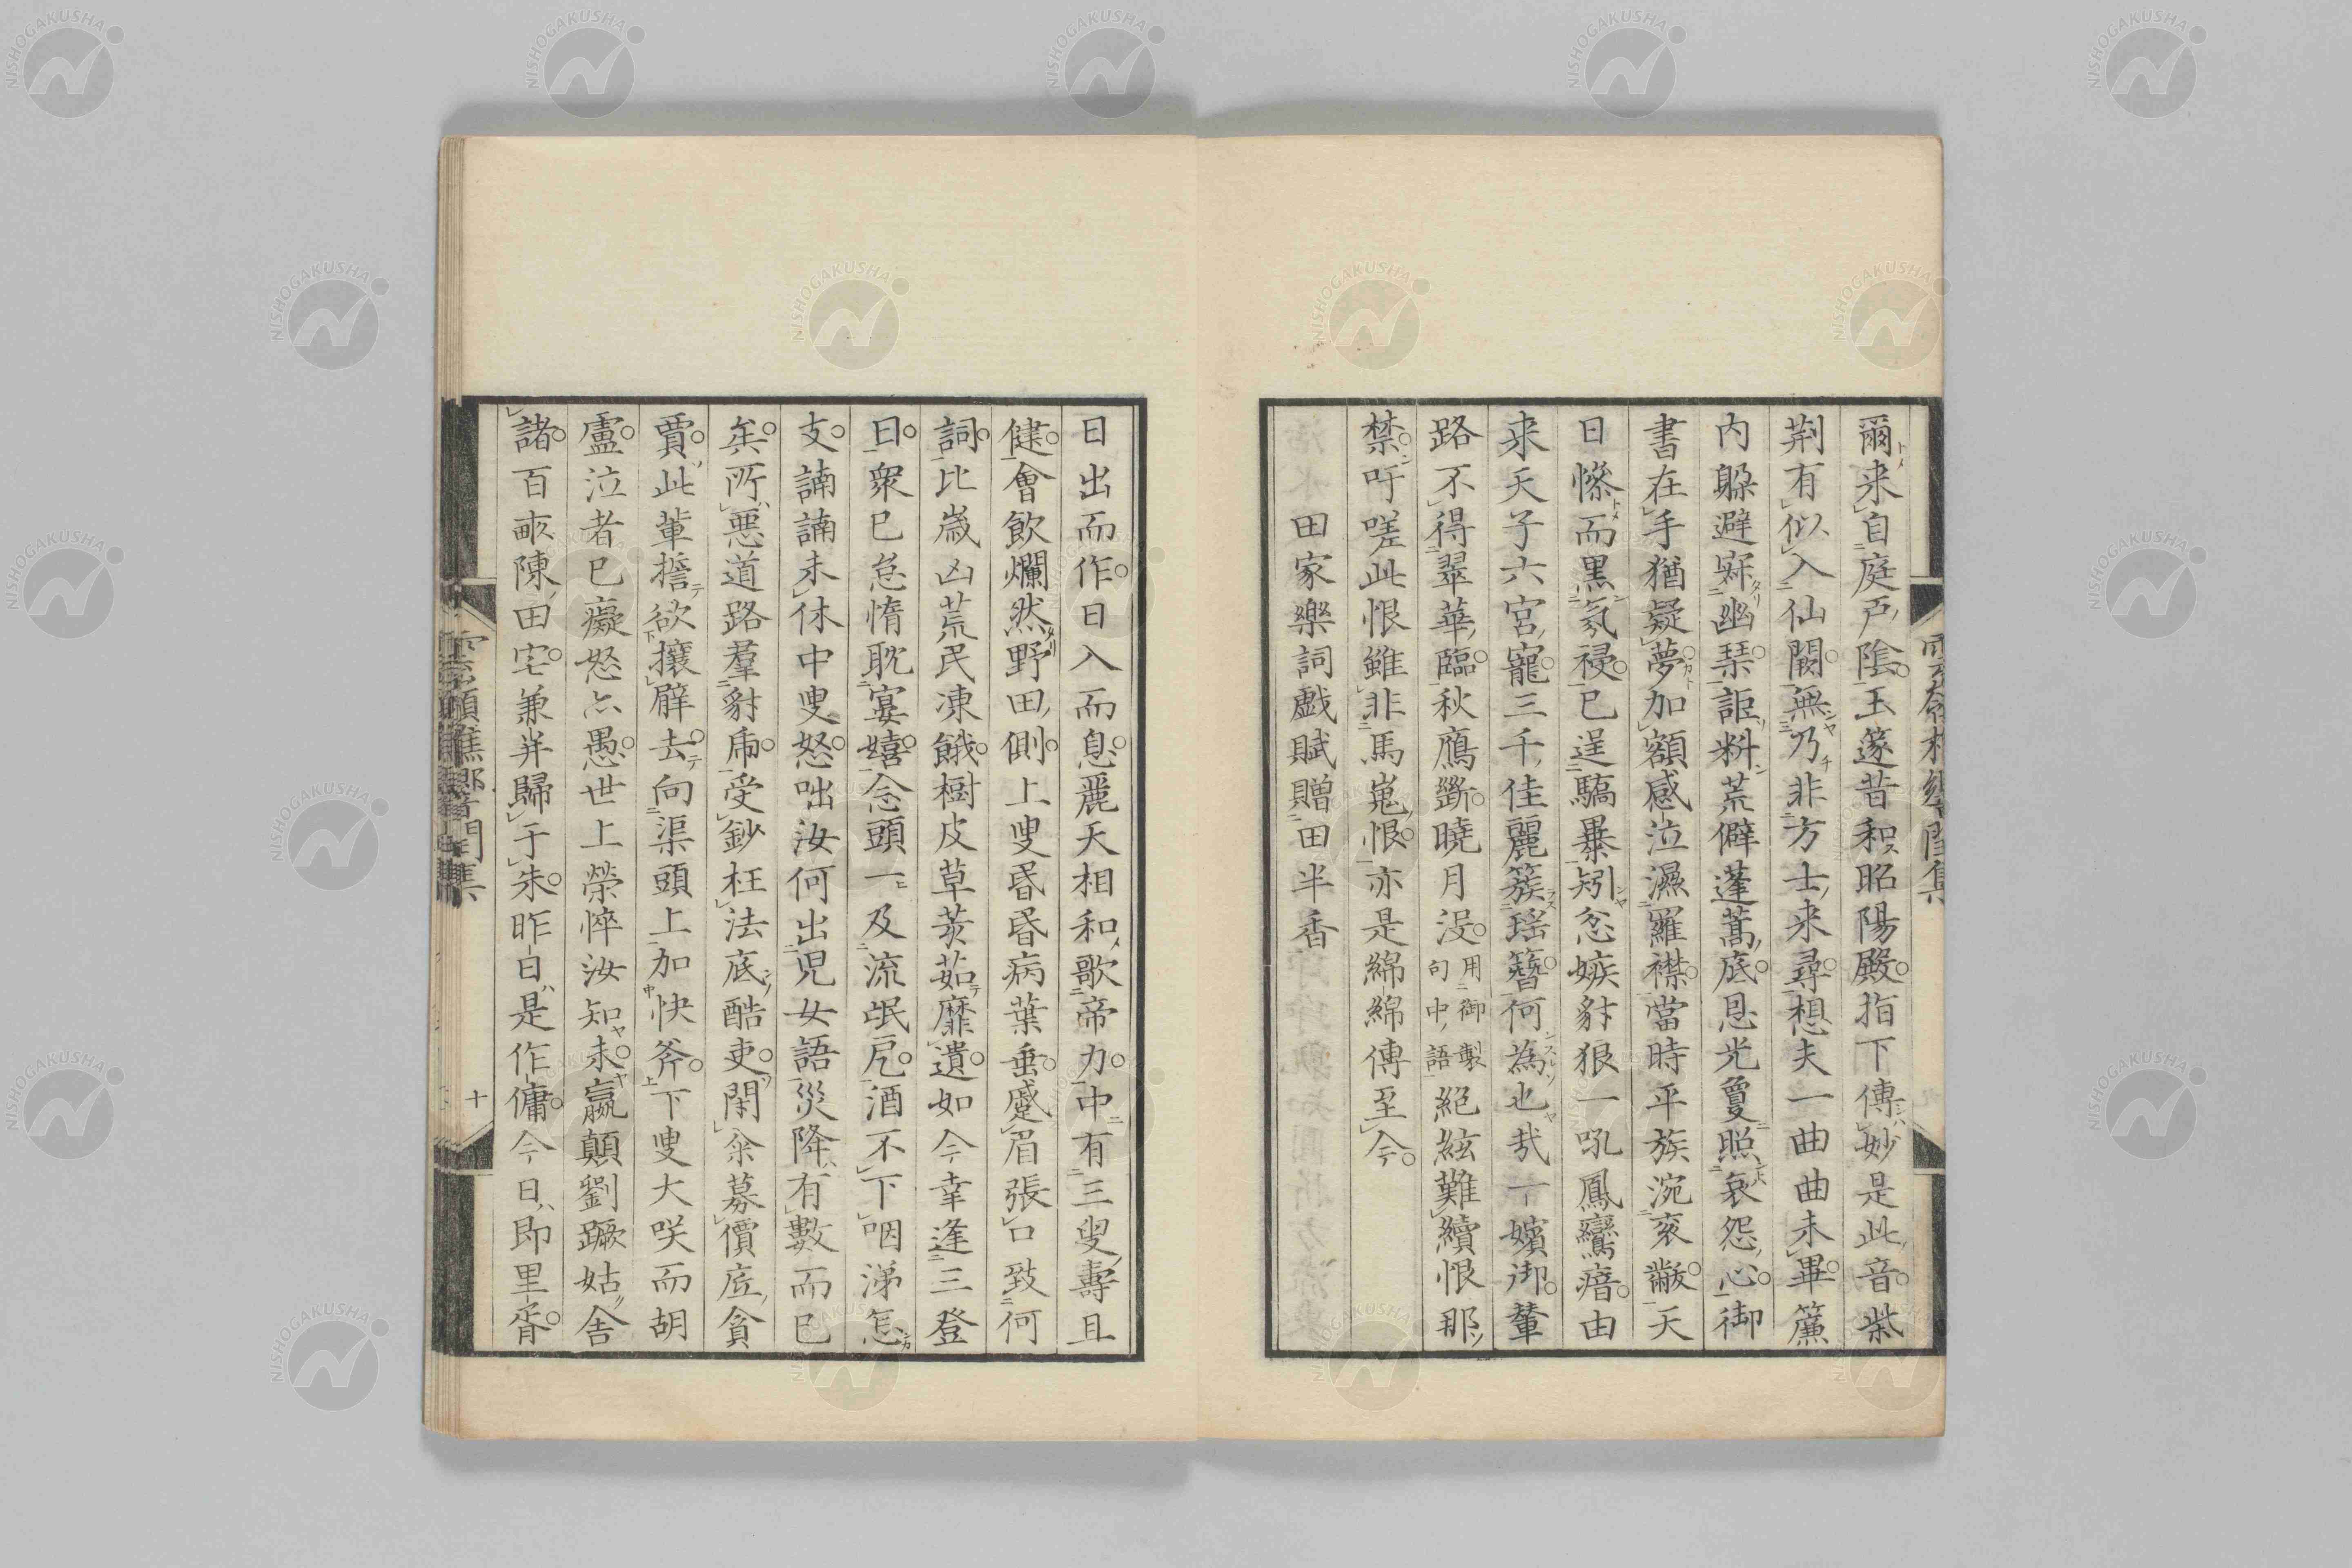 爾来自庭戸陰玉篆昔和昭陽殿指下傳妙是此音柴
荆有似入仙闕無乃非方士来尋想夫一曲曲未畢簾
内躱避寂幽琴詎料荒僻蓬蒿底恩光敻照哀怨心御
書在手猶疑夢加額感泣濕羅襟當時平族涴衮黻天
日慘而黒氛祲已逞驕暴矧忿嫉豺狠一吼鳳鸞瘖由
来天子六宮寵三千佳麗簇瑶簪何為也哉一嬪御輦
路不得翠華臨秋鴈斷曉月没用御製句中語絕絃難續恨那
禁吁嗟此恨雖非馬嵬恨亦是綿綿傳至今
田家樂詞戯賦贈田半香
日出而作日入而息麗天相和歌帝力中有三叟壽且
健會飲爛然野田側上叟昏昏病葉垂蹙眉張口致何
詞比歲凶荒民凍餓樹皮草茇茹靡遺如今幸逢三登
日衆已怠惰耽宴嬉念頭一及流氓戹酒不下咽涕怎
支諵諵未休中叟怒咄汝何出児女語災降有數而已
矣所惡道路羣豺虎受鈔枉法底酷吏閑籴募價底貪
賈此輩擔欲攘臂去向渠頭上加快斧下叟大咲而胡
盧泣者已癡怒亦愚世上榮悴汝知未嬴顛劉蹶姑舎
諸百畝陳田宅兼并歸于朱昨日是作傭今日即里胥
十
NISHOGAKUSHA